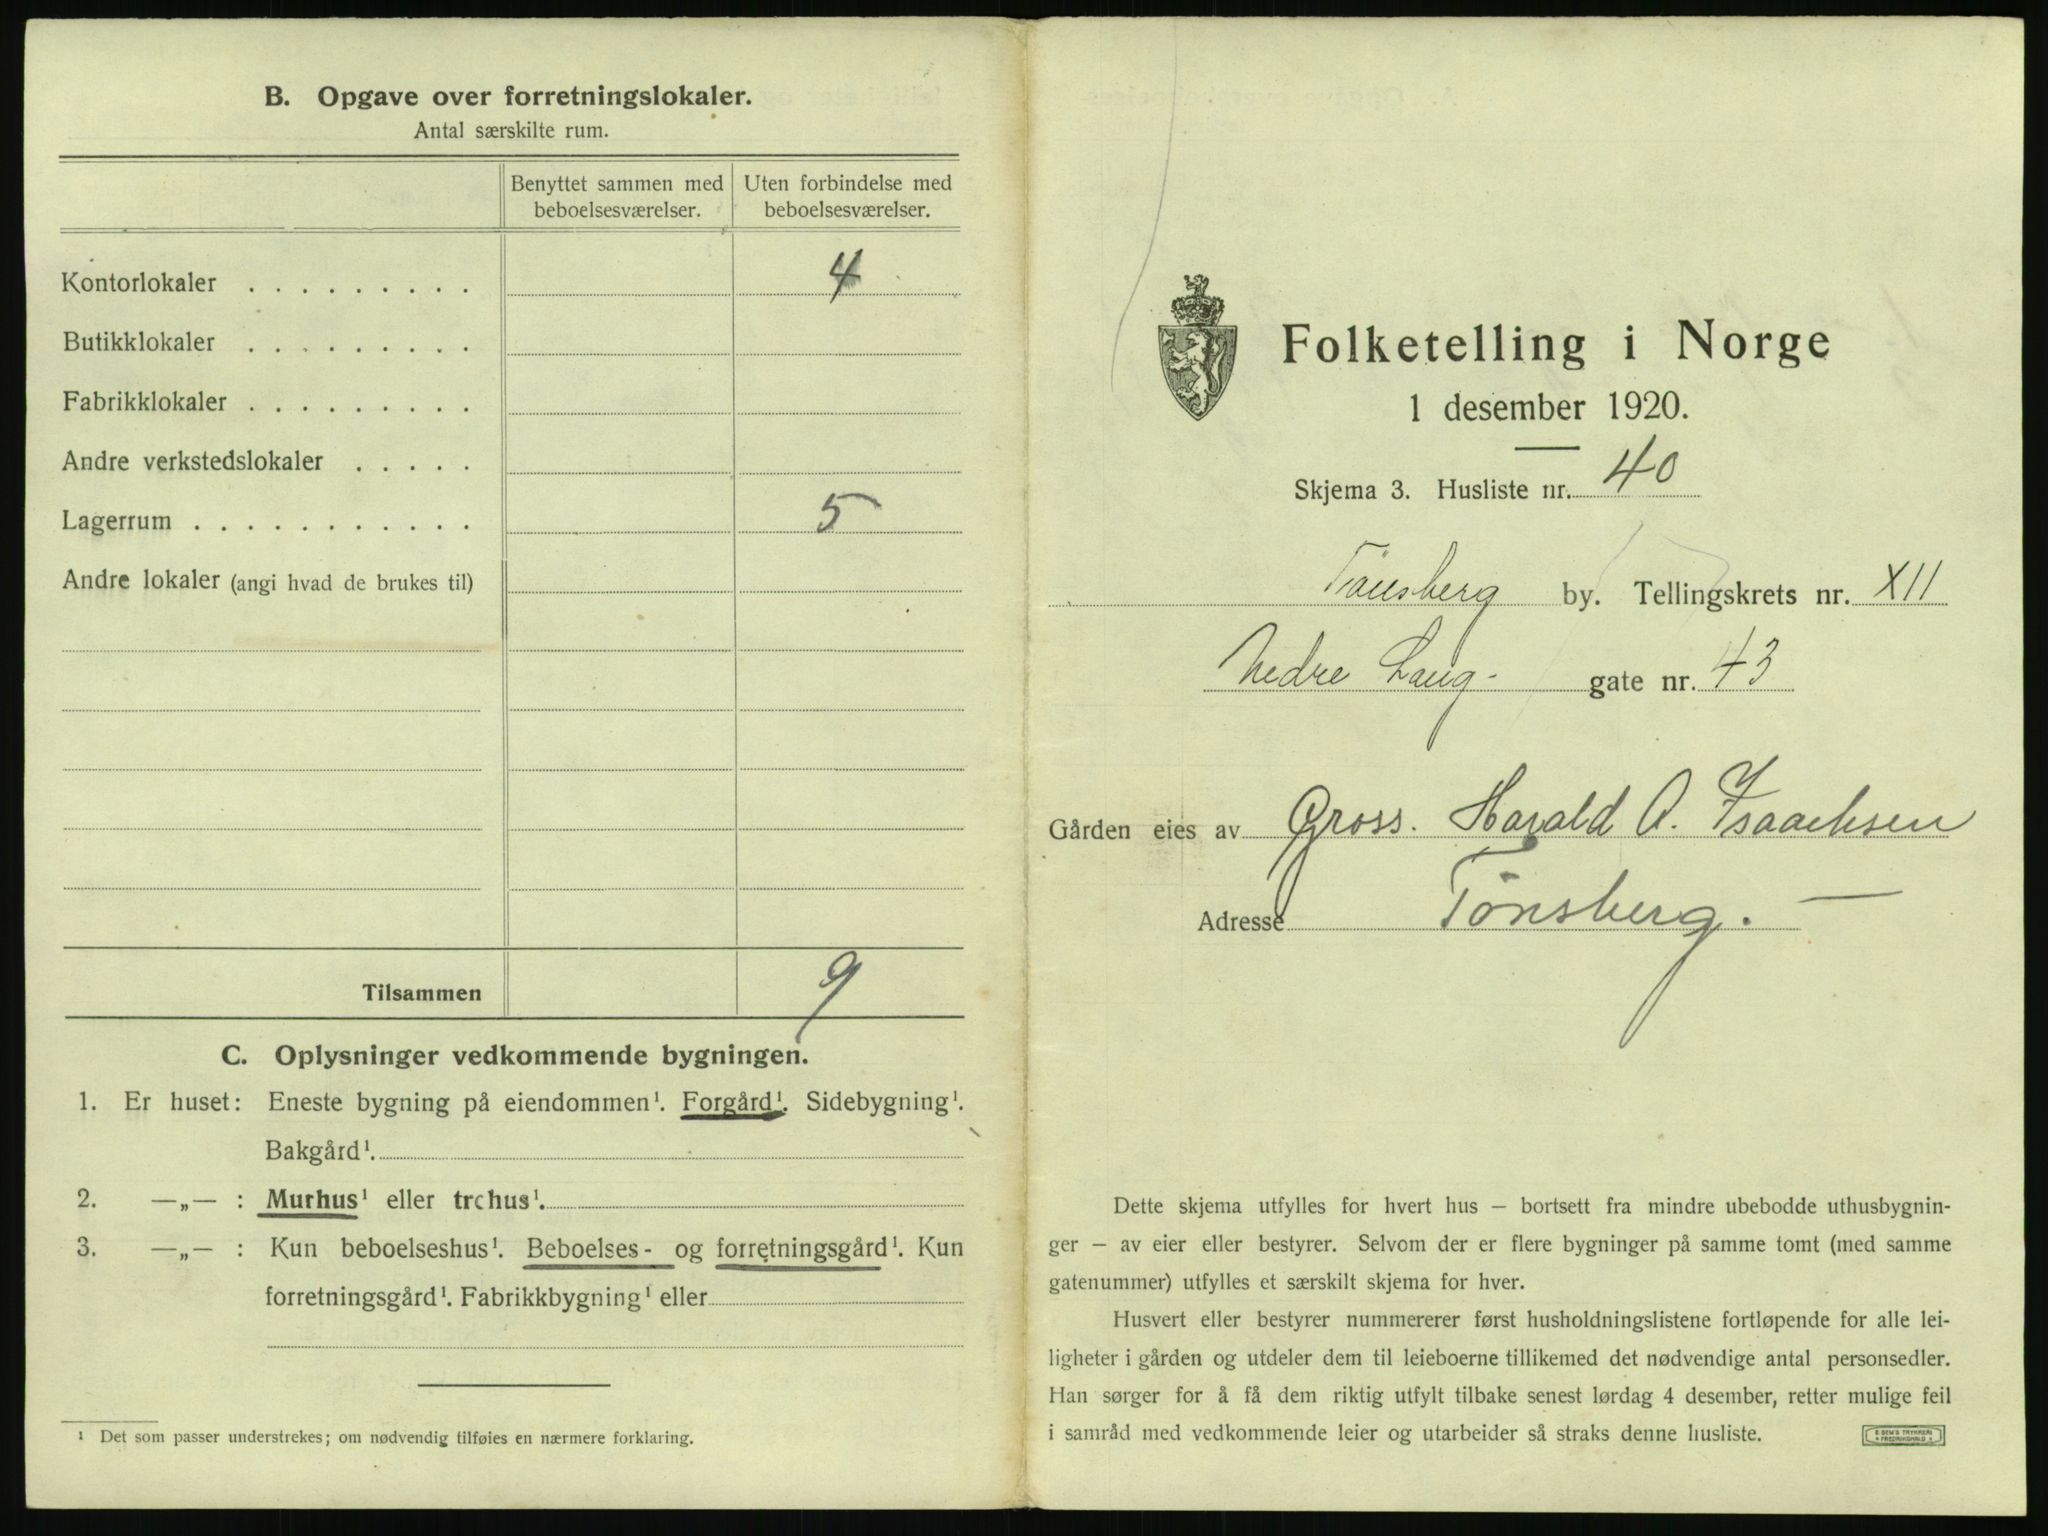 B. Opgave over forretningslokaler.
Antal særskilte rum.
Benyttet sammen med beboelsesværelser.
Uten forbindelse med beboelsesværelser.
Kontorlokaler . . . . . . . . . 4
Butikklokaler . . . . . . . . .
Fabrikklokaler . . . . . . . . .
Andre verkstedslokaler . . . . .
Lagerrum . . . . . . . . . . . 5
Andre lokaler (angi hvad de brukes til)
Tilsammen 9
C. Oplysninger vedkommende bygningen.
1. Er huset: Eneste bygning på eiendommen¹. Forgård¹. Sidebygning¹.
Bakgård¹.
2. —„— : Murhus¹ eller trehus¹.
3. —„— : Kun beboelseshus¹. Beboelses- og forretningsgård¹. Kun
forretningsgård¹. Fabrikkbygning¹ eller
¹ Det som passer understrekes; om nødvendig tilføies en nærmere forklaring.
Folketelling i Norge
1 desember 1920.
Skjema 3. Husliste nr. 40
Tönsberg by. Tellingskrets nr. XII
Nedre Lang- gate nr. 43
Gården eies av Gross. Harald A. Isaachsen
Adresse Tönsberg. —
Dette skjema utfylles for hvert hus – bortsett fra mindre ubebodde uthusbygnin-
ger – av eier eller bestyrer. Selvom der er flere bygninger på samme tomt (med samme
gatenummer) utfylles et særskilt skjema for hver.
Husvert eller bestyrer nummererer først husholdningslistene fortløpende for alle lei-
ligheter i gården og utdeler dem til leieboerne tillikemed det nødvendige antal personsedler.
Han sørger for å få dem riktig utfylt tilbake senest lørdag 4 desember, retter mulige feil
i samråd med vedkommende leier og utarbeider så straks denne husliste.
E. SEM'S TRYKKERI
FREDRIKSHALD